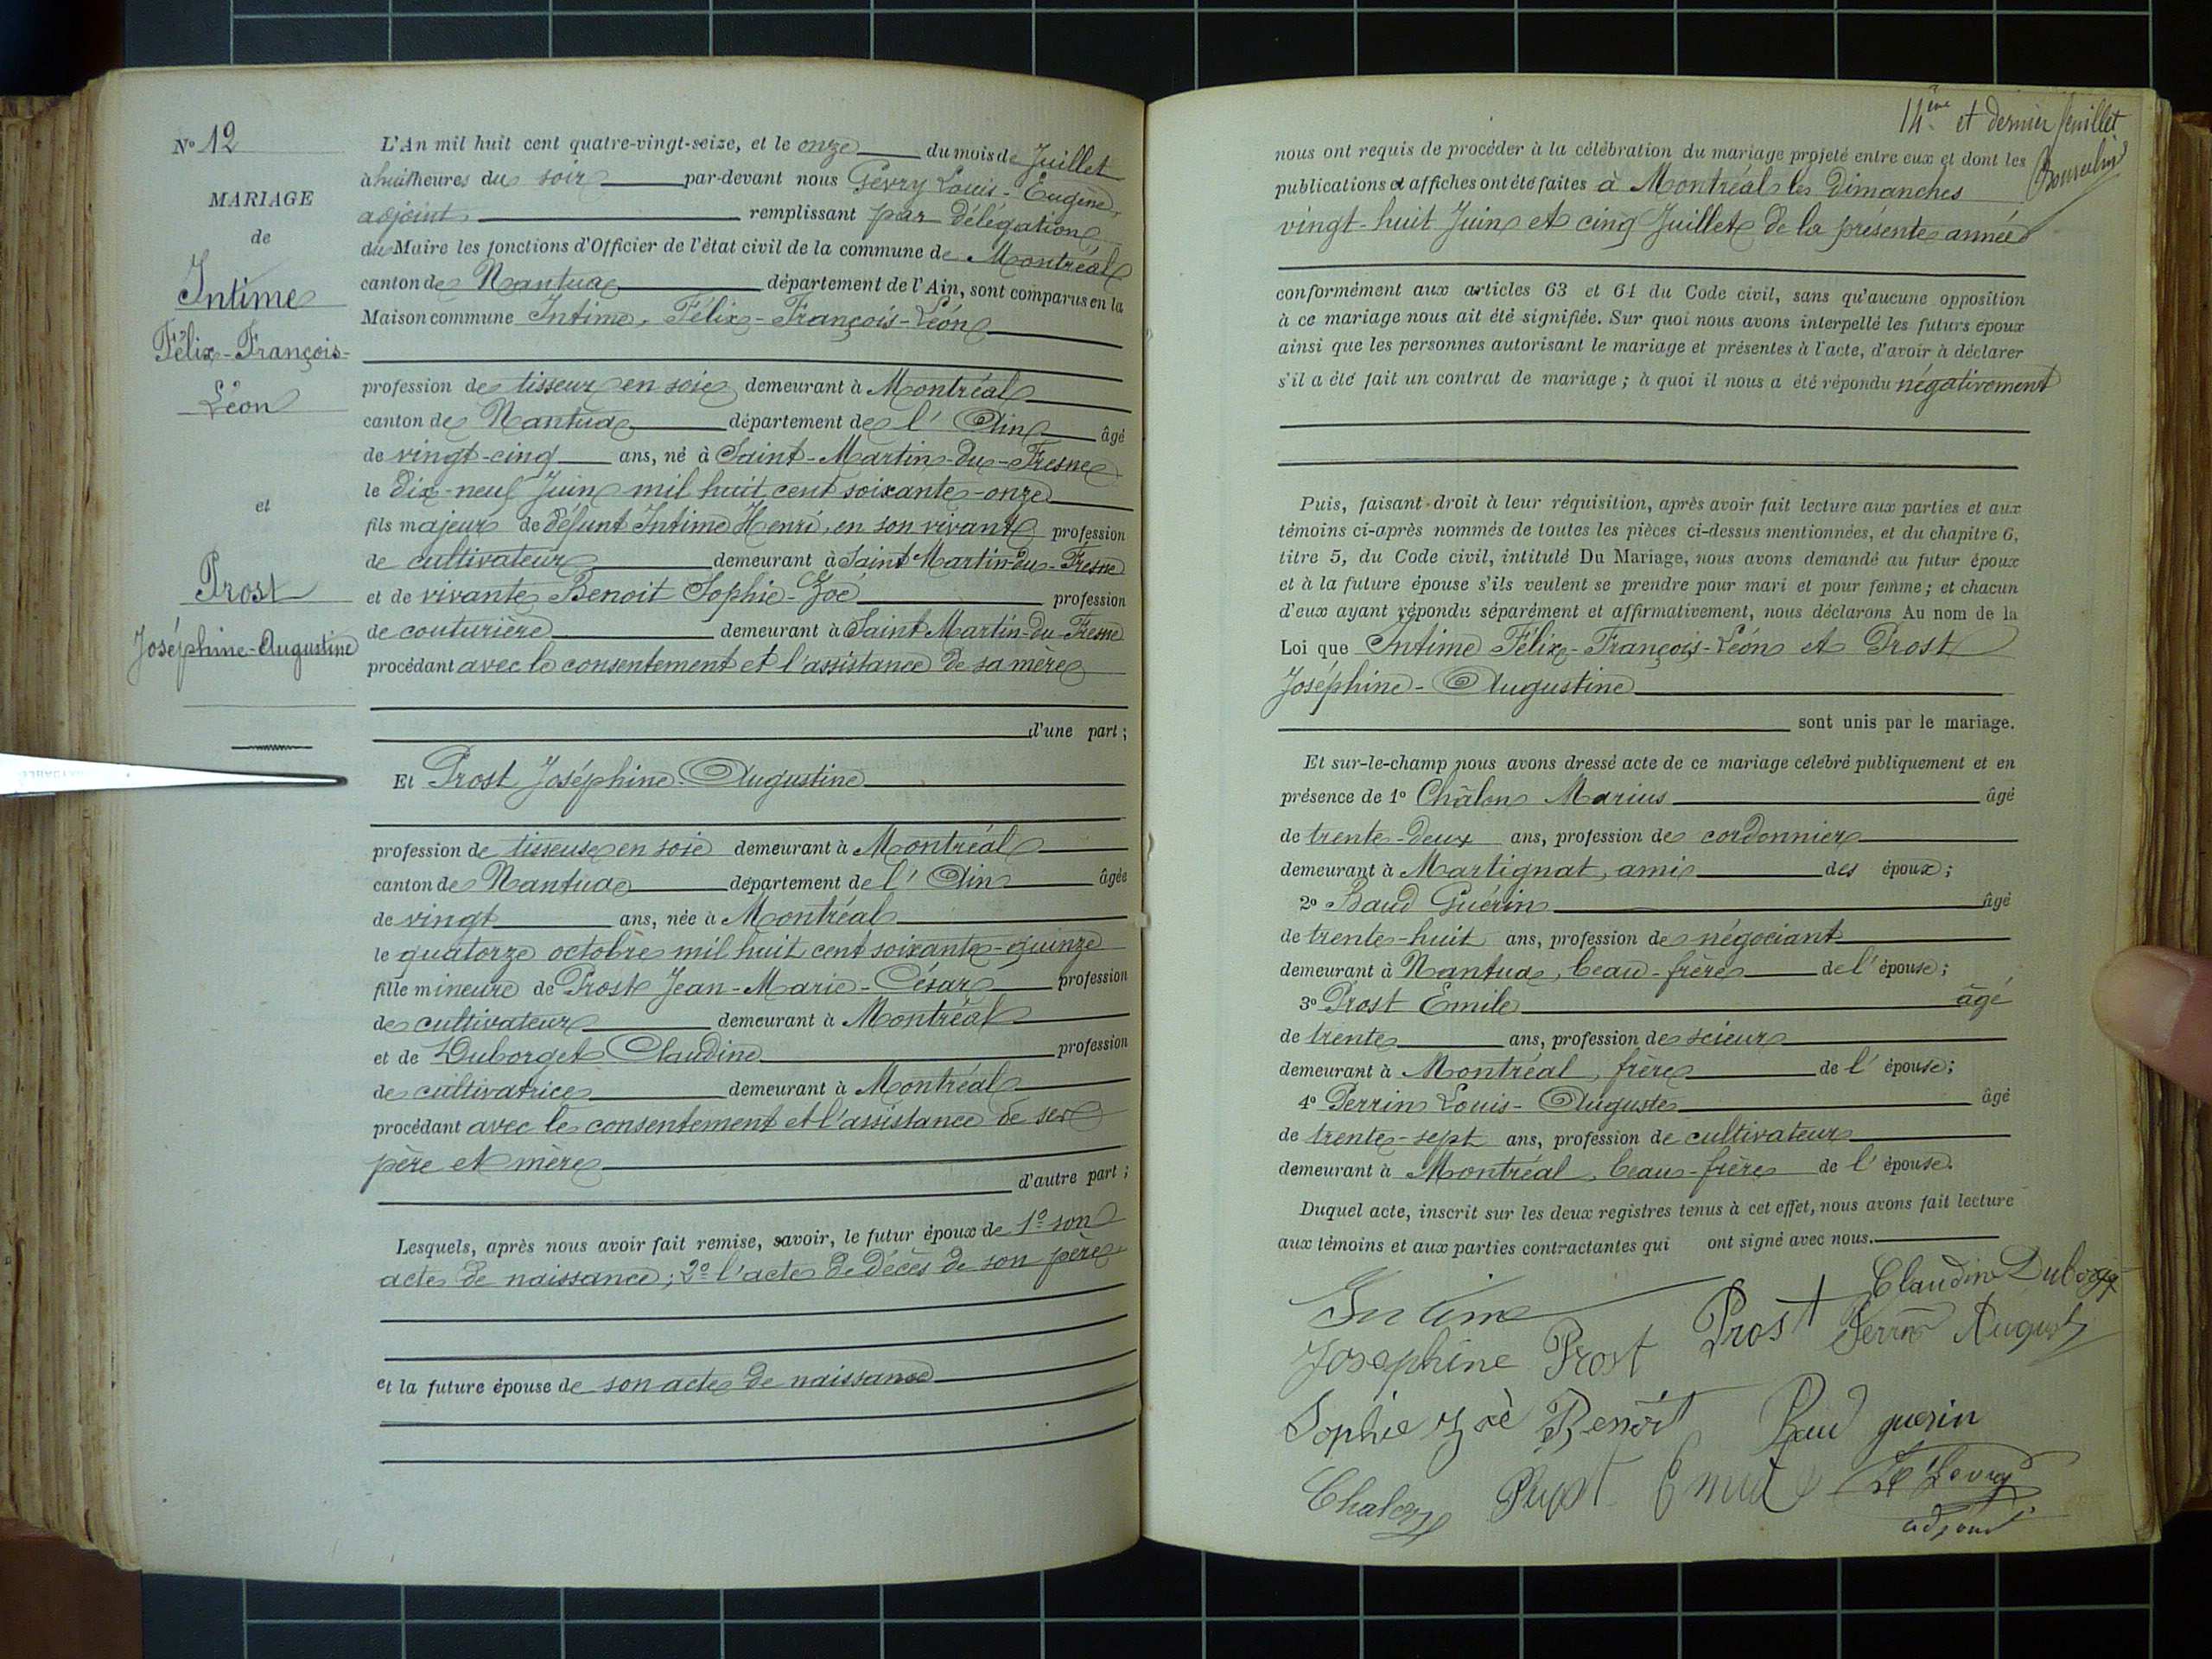 N° 12
MARIAGE
de
Intime
Félix-François-
Léon
et
Prost
Joséphine-Augustine
L'An mil huit cent quatre-vingt-seize, et le onze du mois de Juillet
à huit heures du soir par-devant nous Gévry Louis-Eugène,
adjoint remplissant par délégation
du Maire les fonctions d'Officier de l'état civil de la commune de Montréal
canton de Nantua département de l'Ain, sont comparus en la
Maison commune Intime, Félix-François-Léon
profession de tisseur en soie demeurant à Montréal
canton de Nantua département de l'Ain âgé
de vingt-cinq ans, né à Saint-Martin-du-Fresne
le dix-neuf Juin mil huit cent soixante-onze
fils majeur de défunt Intime Henri, en son vivant profession
de cultivateur demeurant à Saint Martin-du-Fresne
et de vivante Benoit Sophie-Zoé profession
de couturière demeurant à Saint Martin-du-Fresne
procédant avec le consentement et l'assistance de sa mère
d'une part;
Et Prost Joséphine-Augustine
profession de tisseuse en soie demeurant à Montréal
canton de Nantua département de l'Ain âgée
de vingt ans, née à Montréal
le quatorze octobre mil huit cent soixante-quinze
fille mineure de Prost Jean-Marie-César profession
de cultivateur demeurant à Montréal
et de Duborget Claudine profession
de cultivatrice demeurant à Montréal
procédant avec le consentement et l'assistance de ses
père et mère
d'autre part;
Lesquels, après nous avoir fait remise, savoir, le futur époux de 1° son
acte de naissance; 2° l'acte de décès de son père
et la future épouse de son acte de naissance
14ème et dernier feuillet
nous ont requis de procéder à la célébration du mariage projeté entre eux et dont les
publications et affiches ont été faites à Montréal les Dimanches
vingt-huit Juin et cinq Juillet de la présente année
conformément aux articles 63 et 64 du Code civil, sans qu'aucune opposition
à ce mariage nous ait été signifiée. Sur quoi nous avons interpellé les futurs époux
ainsi que les personnes autorisant le mariage et présentes à l'acte, d'avoir à déclarer
s'il a été fait un contrat de mariage; à quoi il nous a été répondu négativement
Puis, faisant droit à leur réquisition, après avoir fait lecture aux parties et aux
témoins ci-après nommés de toutes les pièces ci-dessus mentionnées, et du chapitre 6,
titre 5, du Code civil, intitulé Du Mariage, nous avons demandé au futur époux
et à la future épouse s'ils veulent se prendre pour mari et pour femme; et chacun
d'eux ayant répondu séparément et affirmativement, nous déclarons Au nom de la
Loi que Intime Félix-François-Léon et Prost
Joséphine-Augustine
sont unis par le mariage.
Et sur-le-champ nous avons dressé acte de ce mariage célébré publiquement et en
présence de 1° Châlon Marius âgé
de trente-deux ans, profession de cordonnier
demeurant à Martignat, ami des époux;
2° Baud Guérin âgé
de trente-huit ans, profession de négociant
demeurant à Nantua, beau-frère de l'épouse;
3° Prost Emile âgé
de trente ans, profession de scieur
demeurant à Montréal, frère de l'épouse;
4° Perrin Louis-Auguste âgé
de trente-sept ans, profession de cultivateur
demeurant à Montréal, beau-frère de l'épouse.
Duquel acte, inscrit sur les deux registres tenus à cet effet, nous avons fait lecture
aux témoins et aux parties contractantes qui ont signé avec nous.
Claudine Duborget
Intime
Prost Perrin August
Josephine Prost
Sophie Zoé Benoit Baud guerin
Chalon Prost Emile Le Gevry
adjoint